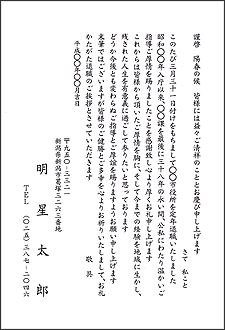 謹啓　陽春の候　皆様には益々ご清祥のこととお慶び申し上げます
さて　私こと
このたび三月三十一日付けをもちまして〇〇市役所を定年退職いたしました
昭和〇〇年入庁以来、〇〇課を最後に三十八年の永い間、公私にわたり温かいご
指導ご厚情を賜りましたことを感謝致し心より厚くお礼申し上げます
これからは皆様から頂いたご厚情を胸に、そして今までの経験を地域に生かし、
残された人生を有意義に過ごして参りたいと思っております
どうか今後とも変わらぬご指導とご厚誼を賜りますようお願い申し上げます
末筆ではございますが皆様のご健勝とご多幸を心よりお祈りいたしまして、お礼
かたがた退職のご挨拶とさせていただきます
敬具
平成〇〇年〇〇月吉日
〒九五〇-三三二一
新潟県新潟市葛塚三二六三番地
明星太郎
TEL（〇二五）三八七-二〇四六